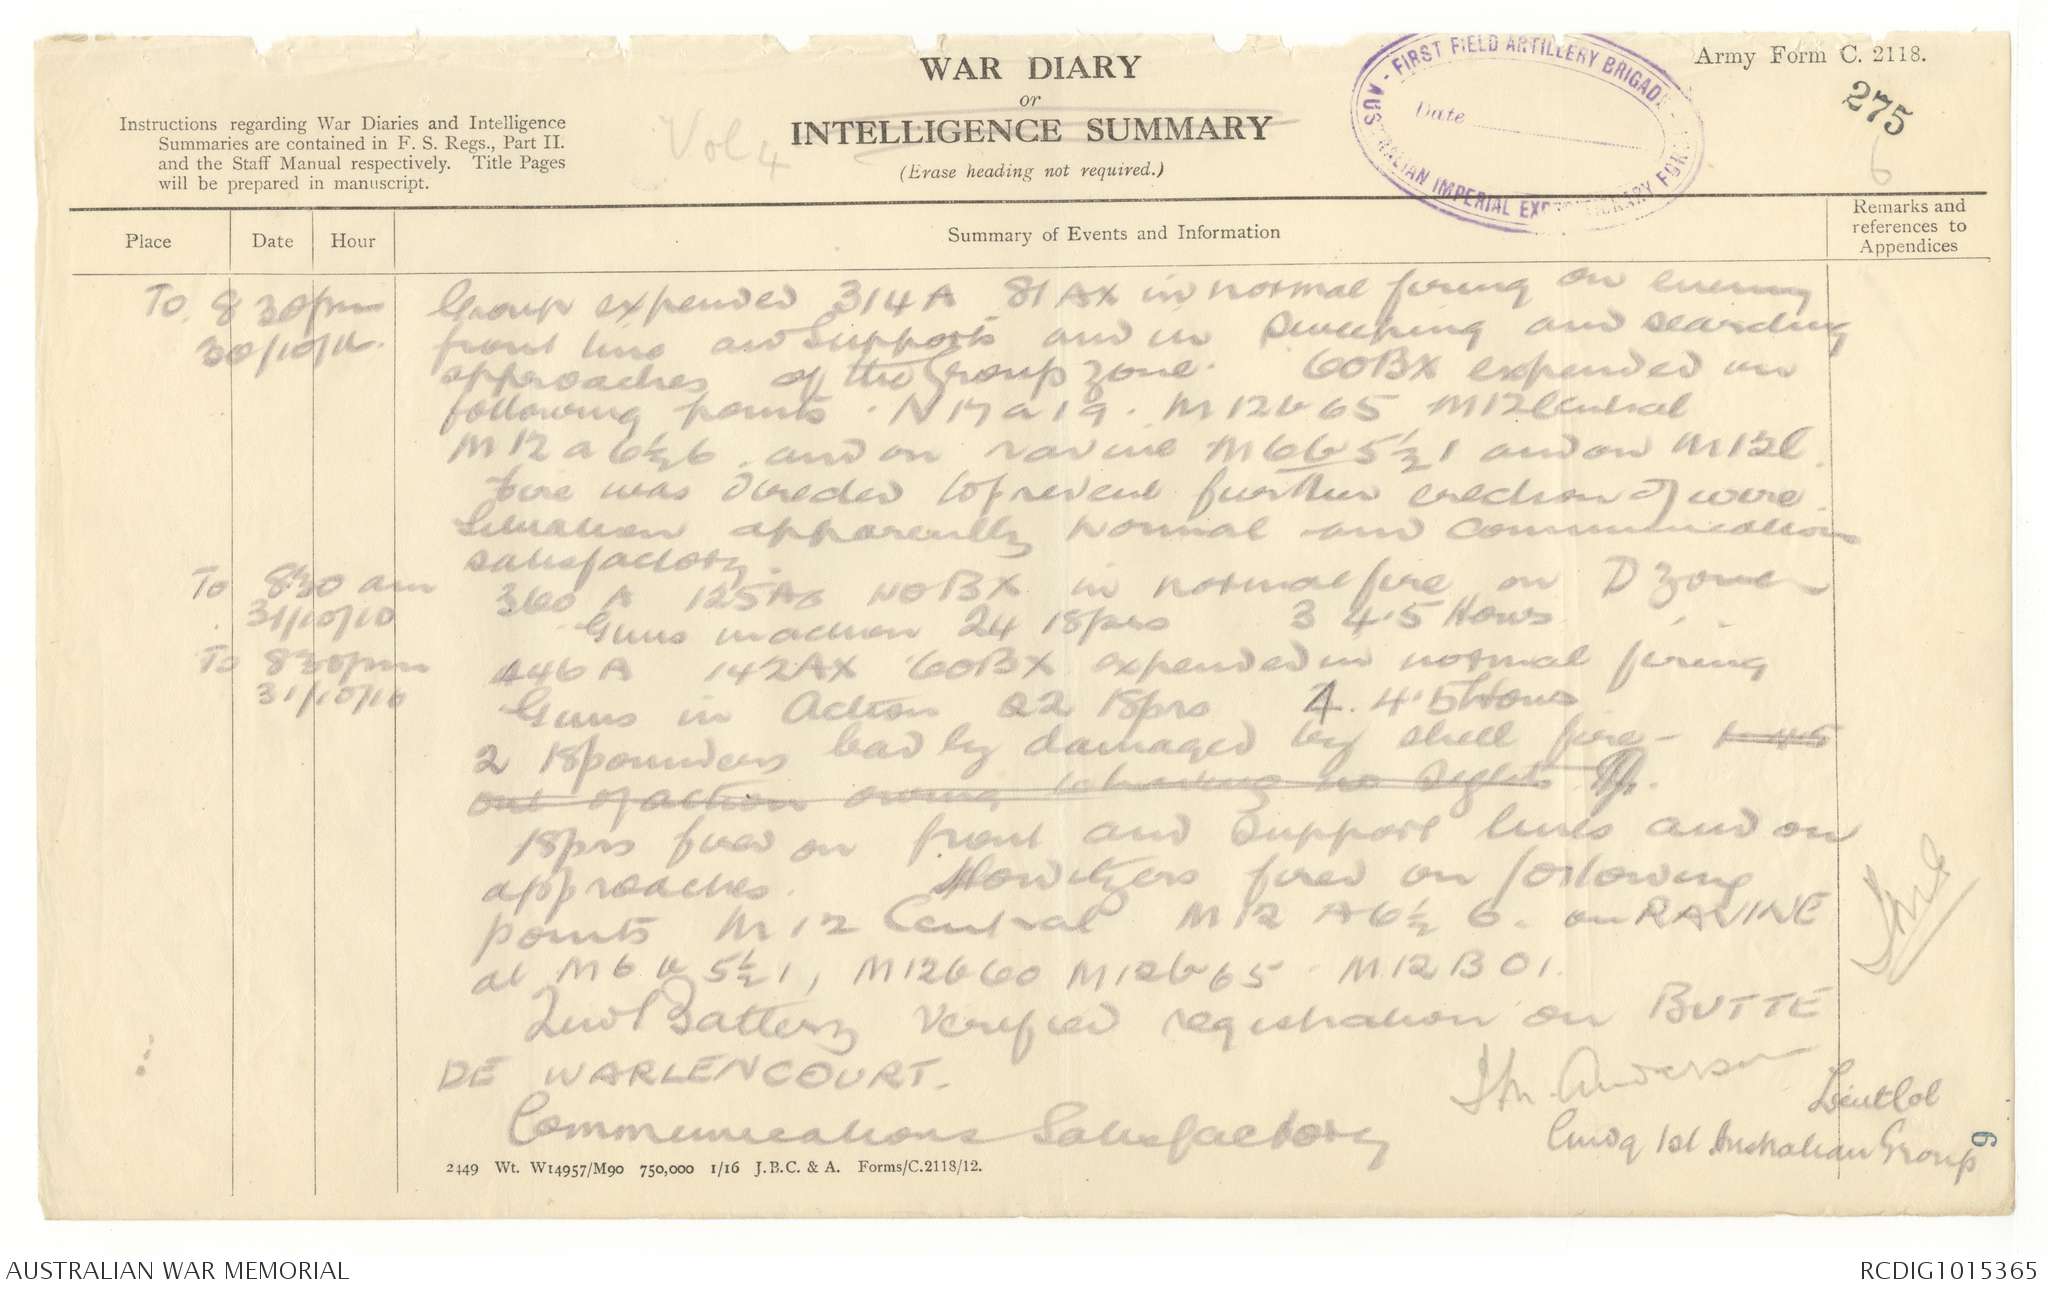 WAR DIARY
or
INTELLIGENCE SUMMARY
(Erase heading not required.)
Army Form C. 2118.
275
6
Vol 4
Instructions regarding War Diaries and Intelligence
Summaries are contained in F. S. Regs., Part II.
and the Staff Manual respectively. Title Pages
will be prepared in manuscript.
- FIRST FIELD ARTILLERY BRIGADE -
Date
AUSTRALIAN IMPERIAL EXPEDITIONARY FORCE
Place
Date
Hour
Summary of Events and Information
Remarks and
references to
Appendices
To 8 30pm
30/10/16.
Group expended 314 A 81 AX in normal firing on enemy
front line and Supports and in sweeping and searching
approaches of the Group zone. 60BX expended on
following points. N 17 a 19. M 12 b 65 M12 Central
M 12 a 6½ 6. and on ravine M 6 b 5½ 1 and on M 12
Fire was directed to prevent further erection of wire.
Situation apparently normal and communications
satisfactory.
To 8.30 am
31/10/16
360 A 125 AX NO BX in normal fire on D zone
Guns in action 24 18prs 3 4.5 Hows
To 8 30pm
31/10/16
446 A 142 AX 60BX expended in normal firing
Guns in Action 22 18prs 4. 4.5 Hows
2 18pounders badly damaged by shell fire - 1 4.5
out of action owing to having no sights
18prs fired on front and support lines and on
approaches. Howitzers fired on following
points M 12 Central M 12 A 6½ 6. on RAVINE
at M 6 b 5½ 1, M 12 b 60 M 12 b 65 - M 12 B 01.
2nd Battery verified registration on BUTTE
DE WARLENCOURT.
Communications Satisfactory
Anderson
Lieut Col
Cmdg 1st Australian Group
9
2449 Wt. W14957/M90 750,000 1/16 J.B.C. & A. Forms/C.2118/12.
AUSTRALIAN WAR MEMORIAL
RCDIG1015365